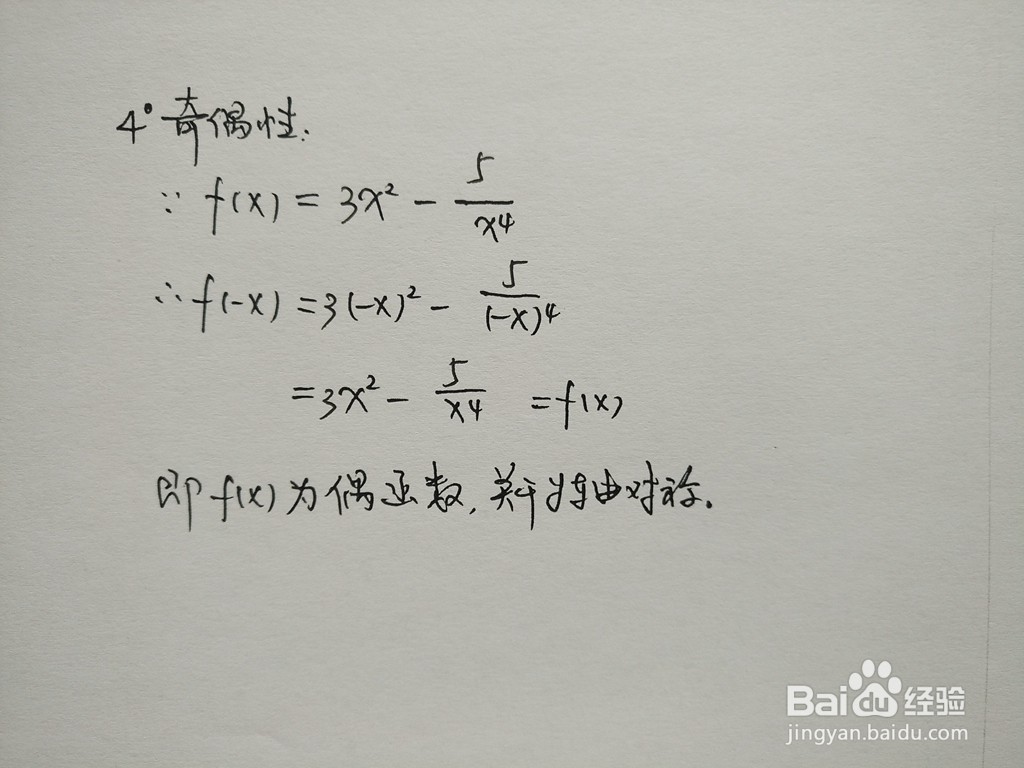 4° 奇偶性.
∵ f(x) = 3x² - 5/x⁴
∴ f(-x) = 3(-x)² - 5/(-x)⁴
= 3x² - 5/x⁴ = f(x)
即 f(x) 为偶函数, 关于y轴对称.
Bai du 经验
jingyan.baidu.com